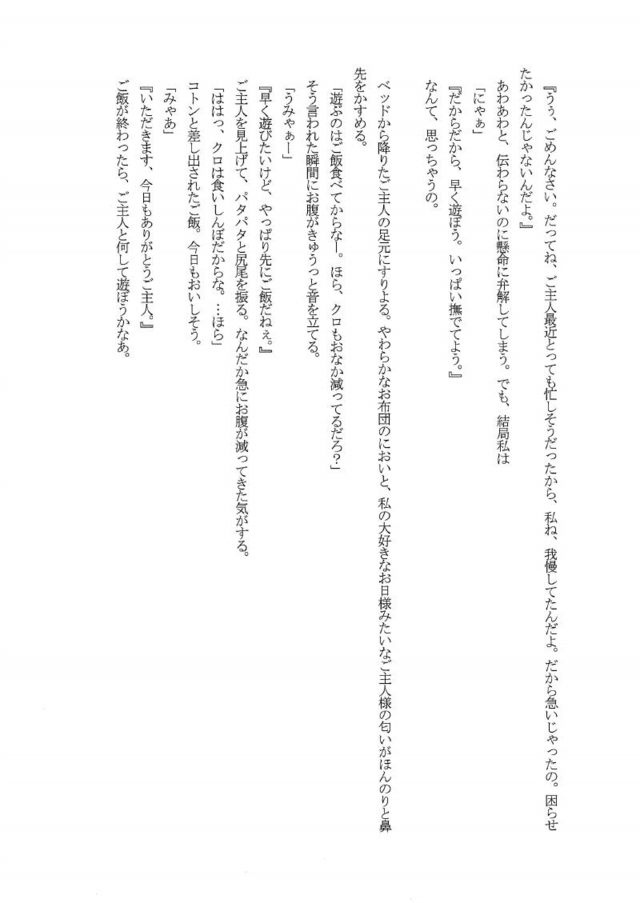 『うぅ、ごめんなさい。だってね、ご主人最近とっても忙しそうだったから、私ね、我慢してたんだよ。だから急いじゃったの。困らせ
たかったんじゃないんだよ。』
あわあわと、伝わらないのに懸命に弁解してしまう。でも、結局私は
「にゃぁ」
『だからだから、早く遊ぼう。いっぱい撫でてよう。』
なんて、思っちゃうの。
ベッドから降りたご主人の足元にすりよる。やわらかなお布団のにおいと、私の大好きなお日様みたいなご主人様の匂いがほんのりと鼻
先をかすめる。
「遊ぶのはご飯食べてからなー。ほら、クロもおなか減ってるだろ？」
そう言われた瞬間にお腹がきゅうっと音を立てる。
「うみゃぁー」
『早く遊びたいけど、やっぱり先にご飯だねぇ。』
ご主人を見上げて、パタパタと尻尾を振る。なんだか急にお腹が減ってきた気がする。
「ははっ、クロは食いしんぼだからな。…ほら」
コトンと差し出されたご飯。今日もおいしそう。
「みゃあ」
『いただきます、今日もありがとうご主人。』
ご飯が終わったら、ご主人と何して遊ぼうかなあ。